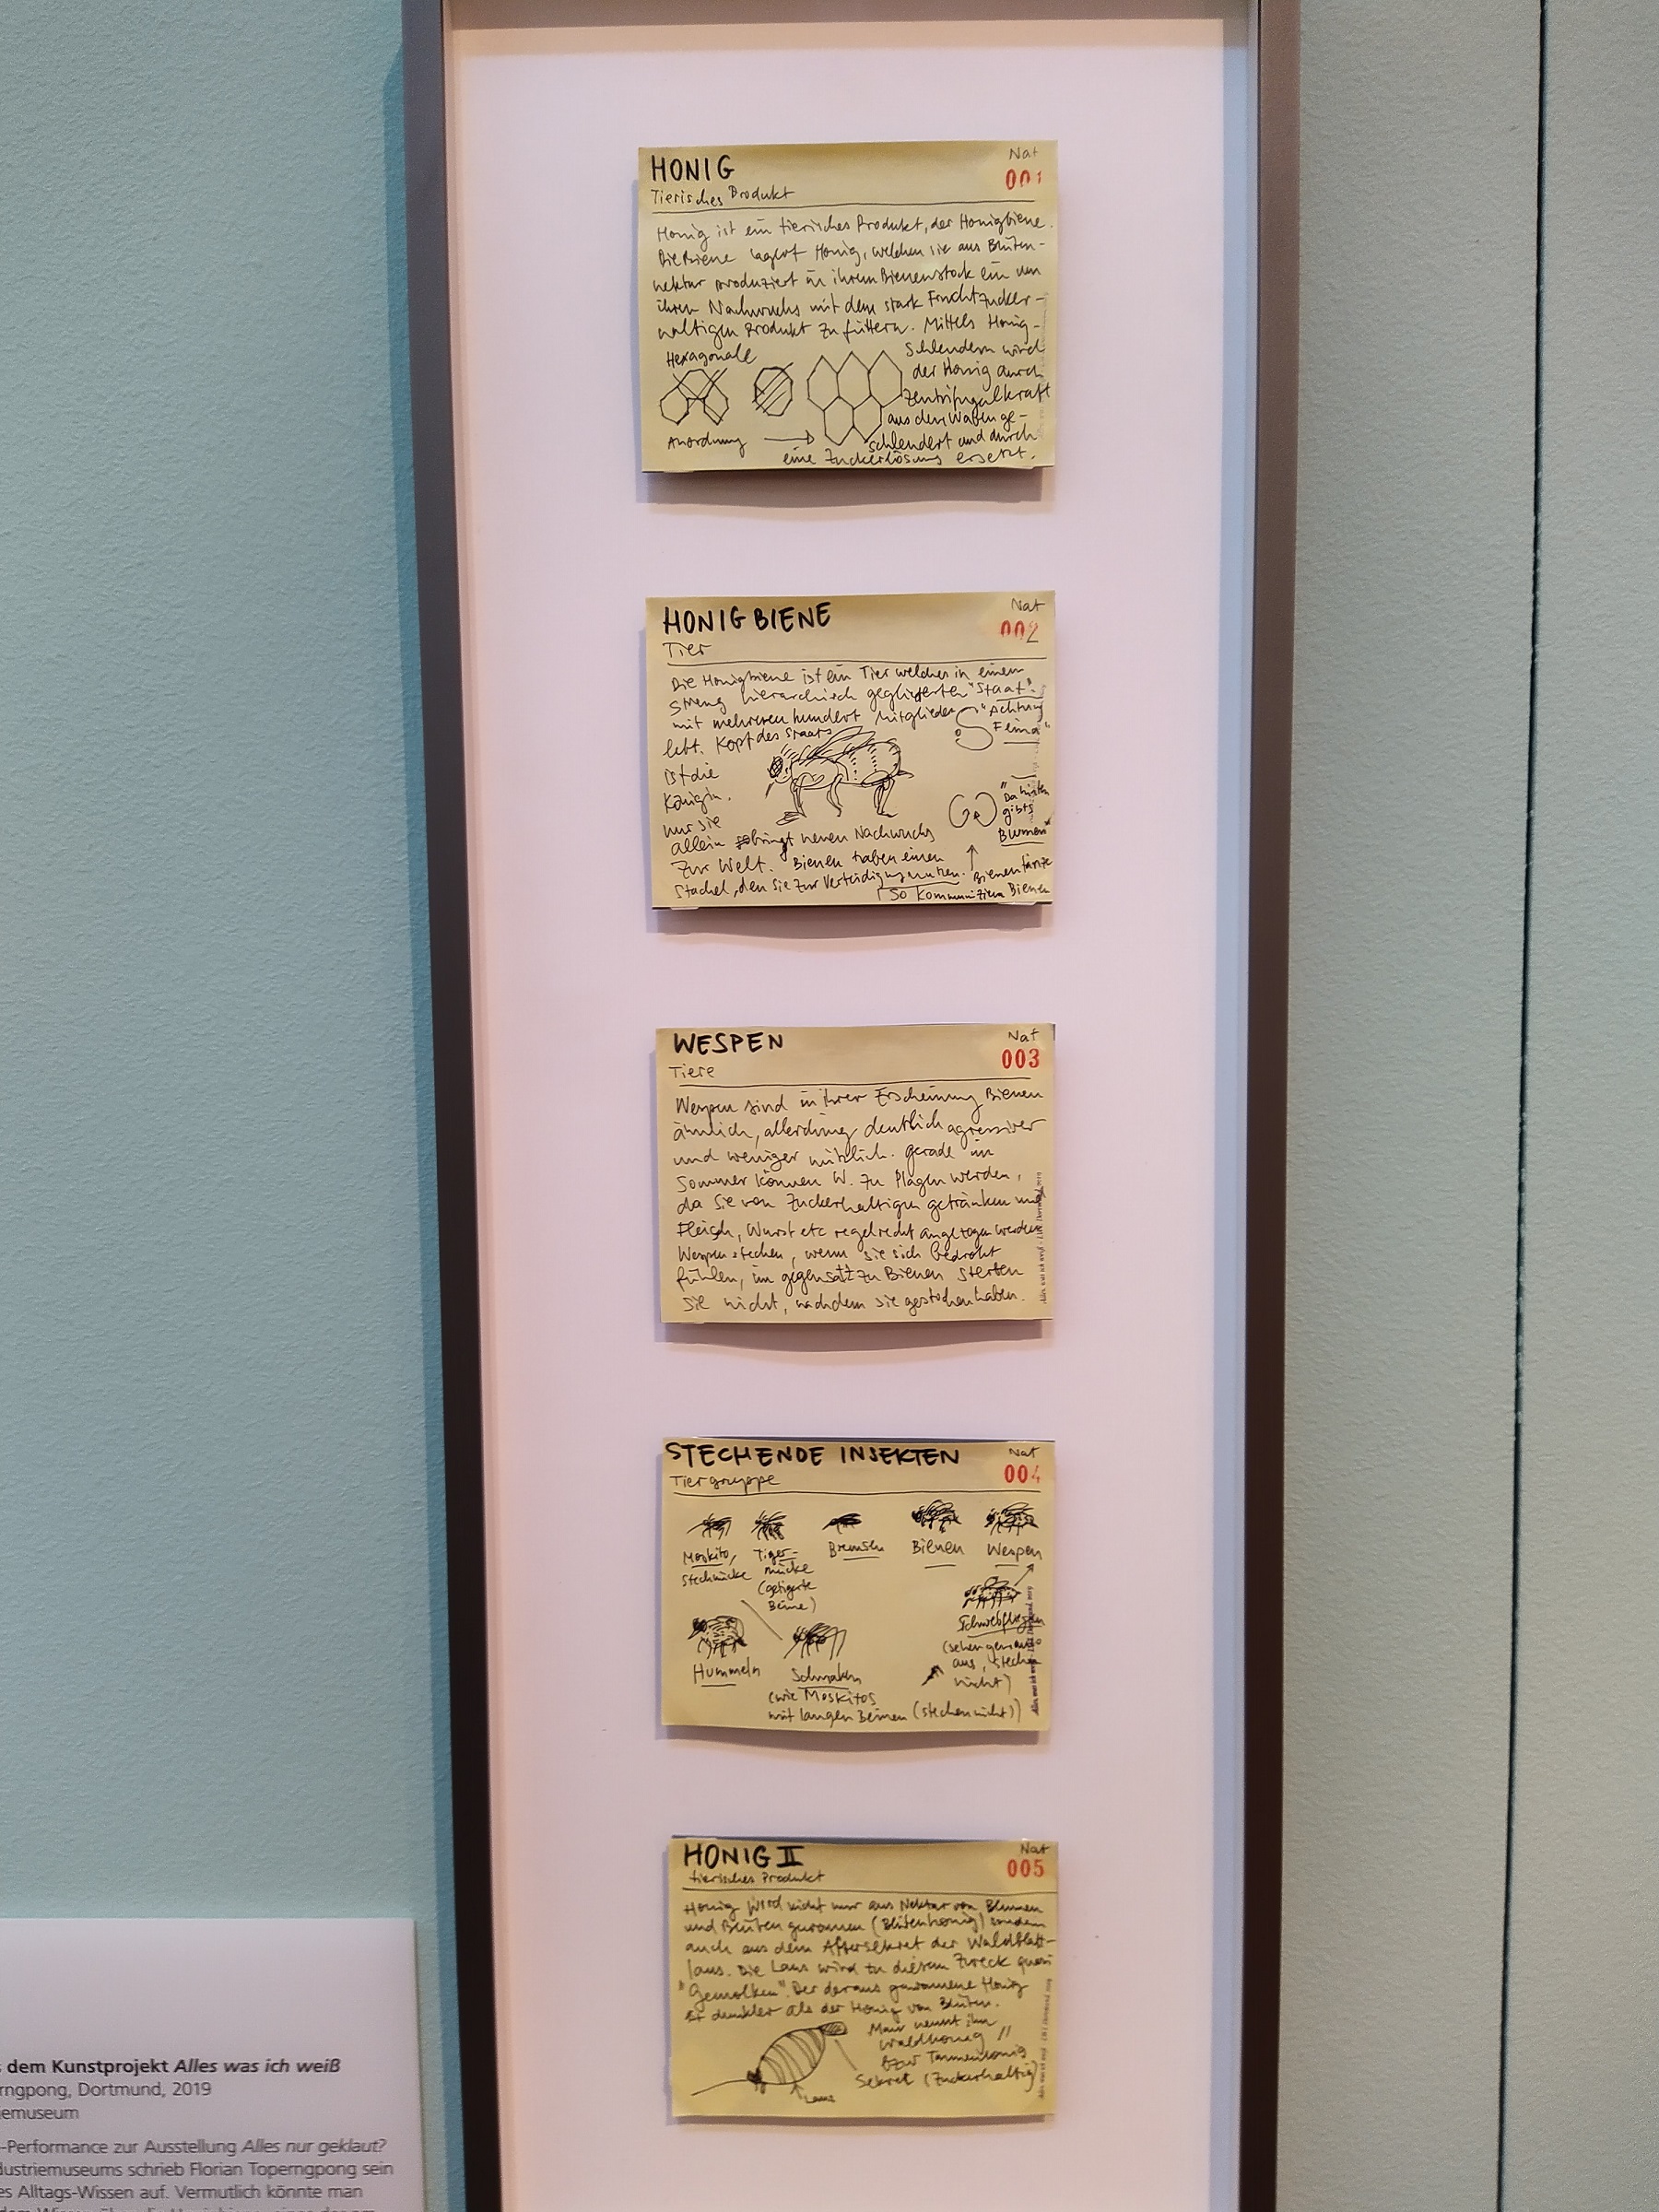 HONIG
Nat
001
Tierisches Produkt
Honig ist ein tierisches Produkt, der Honigbiene.
Die Biene lagert Honig, welchen sie aus Blüten-
nektar produziert in ihrem Bienenstock ein um
ihren Nachwuchs mit dem stark Fruchtzucker-
haltigen Produkt zu füttern. Mittels Honig-
Hexagonale
Anordnung
schleudern wird
der Honig durch
Zentrifugalkraft
aus den Waben ge-
schleudert und durch
eine Zuckerlösung ersetzt.
HONIGBIENE
Nat
002
Tier
Die Honigbiene ist ein Tier welches in einem
streng hierarchisch gegliederten "Staat"
mit mehreren hundert Mitglieder
lebt. Kopf des Staats
ist die
Königin.
nur sie
allein bringt neuen Nachwuchs
zur Welt. Bienen haben einen
Stachel, den sie zur Verteidigung nutzen.
"Achtung
Feind"
"Da hinten
gibts
Blumen"
Bienentänze
So kommunizieren Bienen
WESPEN
Nat
003
Tiere
Wespen sind in ihrer Erscheinung Bienen
ähnlich, allerding deutlich agressiver
und weniger nützlich. gerade im
Sommer können W. zu Plagen werden,
da sie von zuckerhaltigen getränken und
Fleisch, Wurst etc regelrecht angezogen werden
Wespen stechen, wenn sie sich bedroht
fühlen, im gegensatz zu Bienen sterben
sie nicht, nachdem sie gestochen haben.
Alles was ich weiß
STECHENDE INSEKTEN
Nat
004
Tiergruppe
Moskito,
Stechmücke
Tiger-
mücke
(getigerte
Beine)
Bremsen
Bienen
Wespen
Schwebfliegen
(sehen genauso
aus, stechen
nicht)
Hummeln
Schnaken
(wie Moskitos
mit langen Beinen (stechen nicht))
Alles was ich weiß
HONIG II
Nat
005
tierisches Produkt
Honig wird nicht nur aus Nektar von Blumen
und Blüten gewonnen (Blütenhonig) sondern
auch aus dem Aftersekret der Waldblatt-
laus. Die Laus wird zu diesem Zweck quasi
"Gemolken". Der daraus gewonnene Honig
ist dunkler als der Honig von Blüten.
Man nennt ihn
Waldhonig //
bzw Tannenhonig
Sekret (zuckerhaltig)
Laus
dem Kunstprojekt Alles was ich weiß
rngpong, Dortmund, 2019
iemuseum
-Performance zur Ausstellung Alles nur geklaut?
dustriemuseums schrieb Florian Toperngpong sein
es Alltags-Wissen auf. Vermutlich könnte man